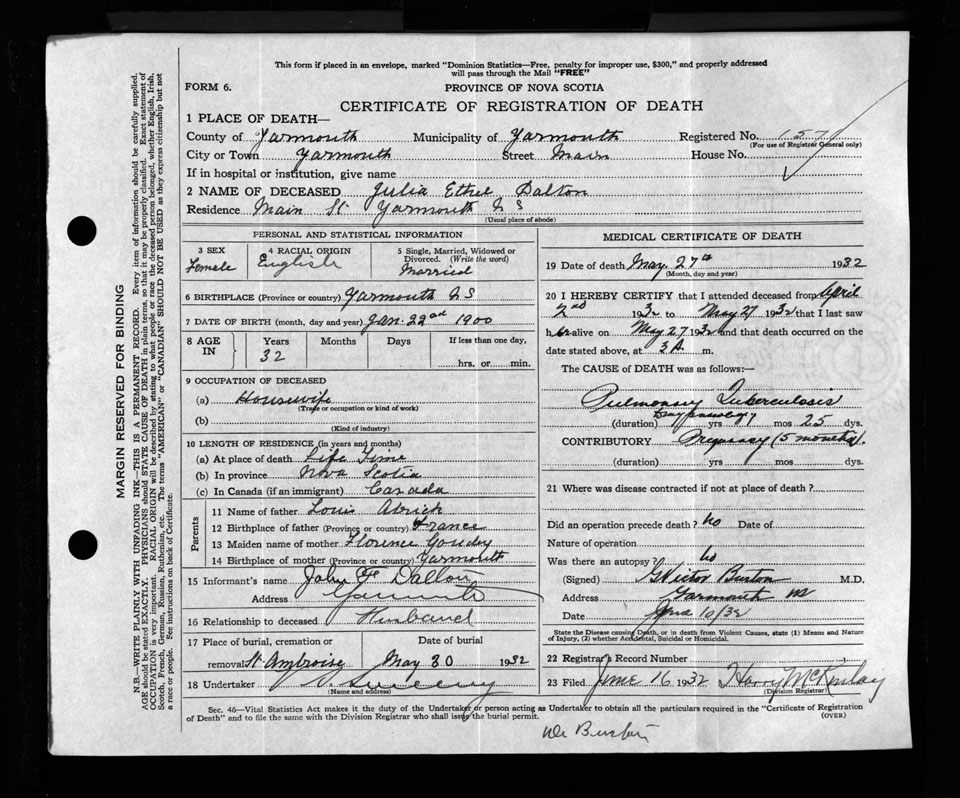 This form if placed in an envelope, marked "Dominion Statistics—Free, penalty for improper use, $300," and properly addressed
will pass through the Mail "FREE"
FORM 6.
PROVINCE OF NOVA SCOTIA
CERTIFICATE OF REGISTRATION OF DEATH
1 PLACE OF DEATH—
County of Yarmouth Municipality of Yarmouth Registered No. 1571
(For use of Registrar General only)
City or Town Yarmouth Street Main House No.
If in hospital or institution, give name
2 NAME OF DECEASED Julia Ethel Dalton
Residence Main St Yarmouth N S
(Usual place of abode)
PERSONAL AND STATISTICAL INFORMATION
3 SEX Female
4 RACIAL ORIGIN English
5 Single, Married, Widowed or Divorced. (Write the word) Married
6 BIRTHPLACE (Province or country) Yarmouth N S
7 DATE OF BIRTH (month, day and year) Jan. 22nd 1900
8 AGE IN Years 32 Months Days If less than one day, hrs. or min.
9 OCCUPATION OF DECEASED
(a) Housewife
(Trade or occupation or kind of work)
(b)
(Kind of industry)
10 LENGTH OF RESIDENCE (in years and months)
(a) At place of death Life Time
(b) In province Nova Scotia
(c) In Canada (if an immigrant) Canada
Parents
11 Name of father Louis
12 Birthplace of father (Province or country) France
13 Maiden name of mother Florence Goudey
14 Birthplace of mother (Province or country) Yarmouth
15 Informant's name John F Dalton
Address Yarmouth
16 Relationship to deceased Husband
17 Place of burial, cremation or removal St. Ambroise Date of burial May 30 1932
18 Undertaker V. Sweeny
(Name and address)
MEDICAL CERTIFICATE OF DEATH
19 Date of death May 27th 1932
(Month, day and year)
20 I HEREBY CERTIFY that I attended deceased from April
2nd 1932 to May 27 1932 that I last saw
her alive on May 27 1932 and that death occurred on the
date stated above, at 3 A. m.
The CAUSE of DEATH was as follows:—
Pulmonary Tuberculosis
(duration) yrs mos 25 dys.
CONTRIBUTORY Pregnancy (5 months).
(duration) yrs mos dys.
21 Where was disease contracted if not at place of death?
Did an operation precede death? No Date of
Nature of operation
Was there an autopsy? No
(Signed) G Victor Burton M.D.
Address Yarmouth NS
Date June 10/32
State the Disease causing Death, or in death from Violent Causes, state (1) Means and Nature
of Injury, (2) whether Accidental, Suicidal or Homicidal.
22 Registrar's Record Number
23 Filed June 16 1932 Harry McKinlay
(Division Registrar)
Sec. 46—Vital Statistics Act makes it the duty of the Undertaker or person acting as Undertaker to obtain all the particulars required in the "Certificate of Registration
of Death" and to file the same with the Division Registrar who shall issue the burial permit.
(OVER)
Dr Burton
MARGIN RESERVED FOR BINDING
N.B.—WRITE PLAINLY WITH UNFADING INK—THIS IS A PERMANENT RECORD. Every item of information should be carefully supplied.
AGE should be stated EXACTLY. PHYSICIANS should STATE CAUSE OF DEATH in plain terms, so that it may be properly classified. Exact statement of
OCCUPATION is very important. RACIAL ORIGIN will be described by stating to what people or race the deceased person belonged, whether English, Irish,
Scotch, French, German, Russian, Ruthenian, etc. The terms "AMERICAN" or "CANADIAN" SHOULD NOT BE USED as they express citizenship but not
a race or people. See instructions on back of Certificate.